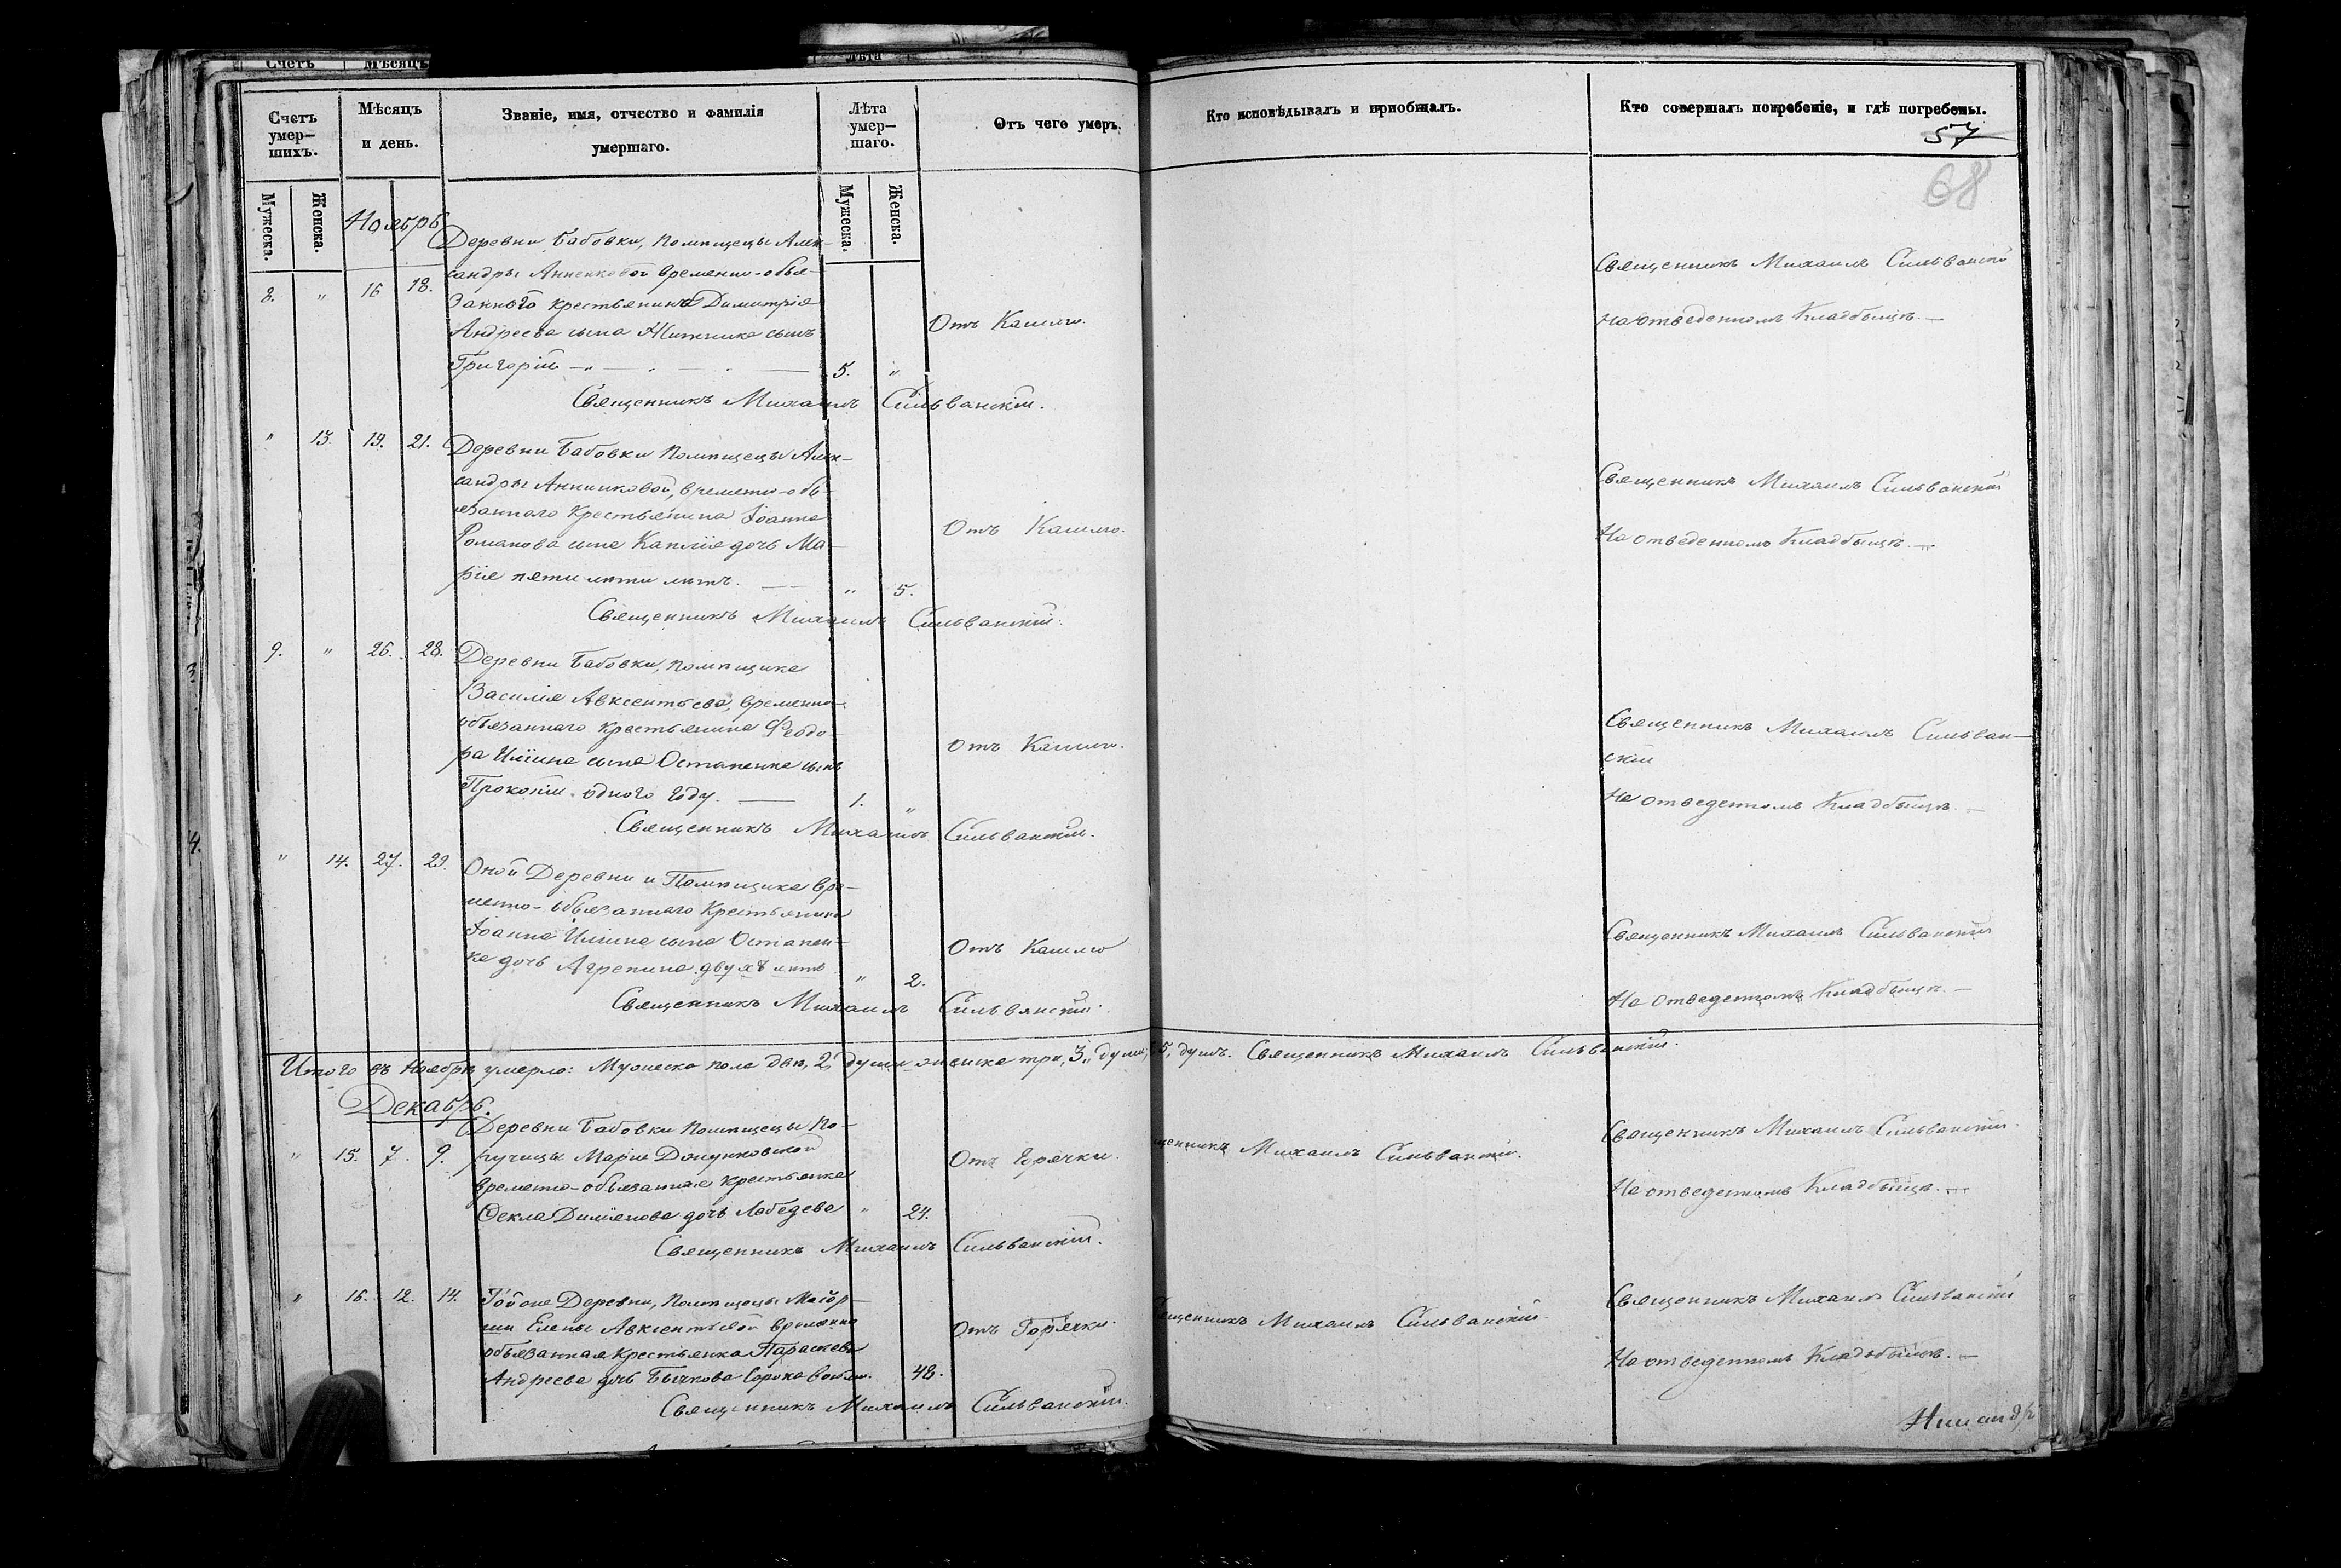 Счетъ умер- шихъ.
Мѣсяцъ и день.
Званіе, имя, отчество и фамилія умершаго.
Лѣта умер- шаго.
Отъ чего умеръ.
Кто исповѣдывалъ и пріобщалъ.
Кто совершалъ погребеніе, и гдѣ погребены.
57
68
Мужеска. Женска.
Мужеска. Женска.
Ноябрь
8. " 16 18.
Деревни Бабовки, помѣщицы Алек-
сандры Анненковой временно-обя-
заннаго крестьянина Димитрія
Андреева сына Житника сынъ
Григорій 5. "
Отъ Кашлю.
Священникъ Михаилъ Сильванскій
На отведенномъ Кладбыщѣ.
Священникъ Михаилъ Сильванскій.
" 13. 19. 21.
Деревни Бабовки Помѣщицы Алек-
сандры Анниковой, временно-об-
язаннаго Крестьянина Іоанна
Романова сына Каплія дочь Ма-
рія пяти лѣтъ. " 5.
Отъ Кашлю.
Священникъ Михаилъ Сильванскій
На отведенномъ Кладбыщѣ.
Священникъ Михаилъ Сильванскій.
9. " 26. 28.
Деревни Бабовки, помѣщика
Василія Авксентьева, временно-
обязаннаго крестьянина Феодо-
ра Иліина сына Остапенка сынъ
Прокопій одного году. 1. "
Отъ Кашлю.
Священникъ Михаилъ Сильван-
скій
На отведенномъ Кладбыщѣ.
Священникъ Михаилъ Сильванскій.
" 14. 27. 29.
Оной Деревни и Помѣщика вре-
менно-обязаннаго Крестьянина
Іоанна Иліина сына Остапен-
ка дочь Агрепина двухъ лѣтъ " 2.
Отъ Кашлю
Священникъ Михаилъ Сильванскій
На отведенномъ Кладбыщѣ.
Священникъ Михаилъ Сильванскій.
Итого въ Ноябрѣ умерло: Мужеска пола двѣ, 2, души женска три, 3, души, 5, душъ. Священникъ Михаилъ Сильванскій.
Декабрь.
" 15. 7. 9.
Деревни Бабовки Помѣщицы По-
ручицы Маріи
временно-обязанная крестьянка
Фекла Диміянова дочь Лебедева " 24.
Отъ Горячки.
щенникъ Михаилъ Сильванскій.
Священникъ Михаилъ Сильванскій.
На отведенномъ Кладбыщѣ.
Священникъ Михаилъ Сильванскій.
" 16. 12. 14.
Деревни, помѣщицы Маіор-
ши Елены Авксентьевой временно
обязанная Крестьянка Параскева
Андреева дочь Бычкова сорока 48.
Отъ Горячки.
щенникъ Михаилъ Сильванскій.
Священникъ Михаилъ Сильванскій
На отведенномъ Кладбыщѣ.
Священникъ Михаилъ Сильванскій.